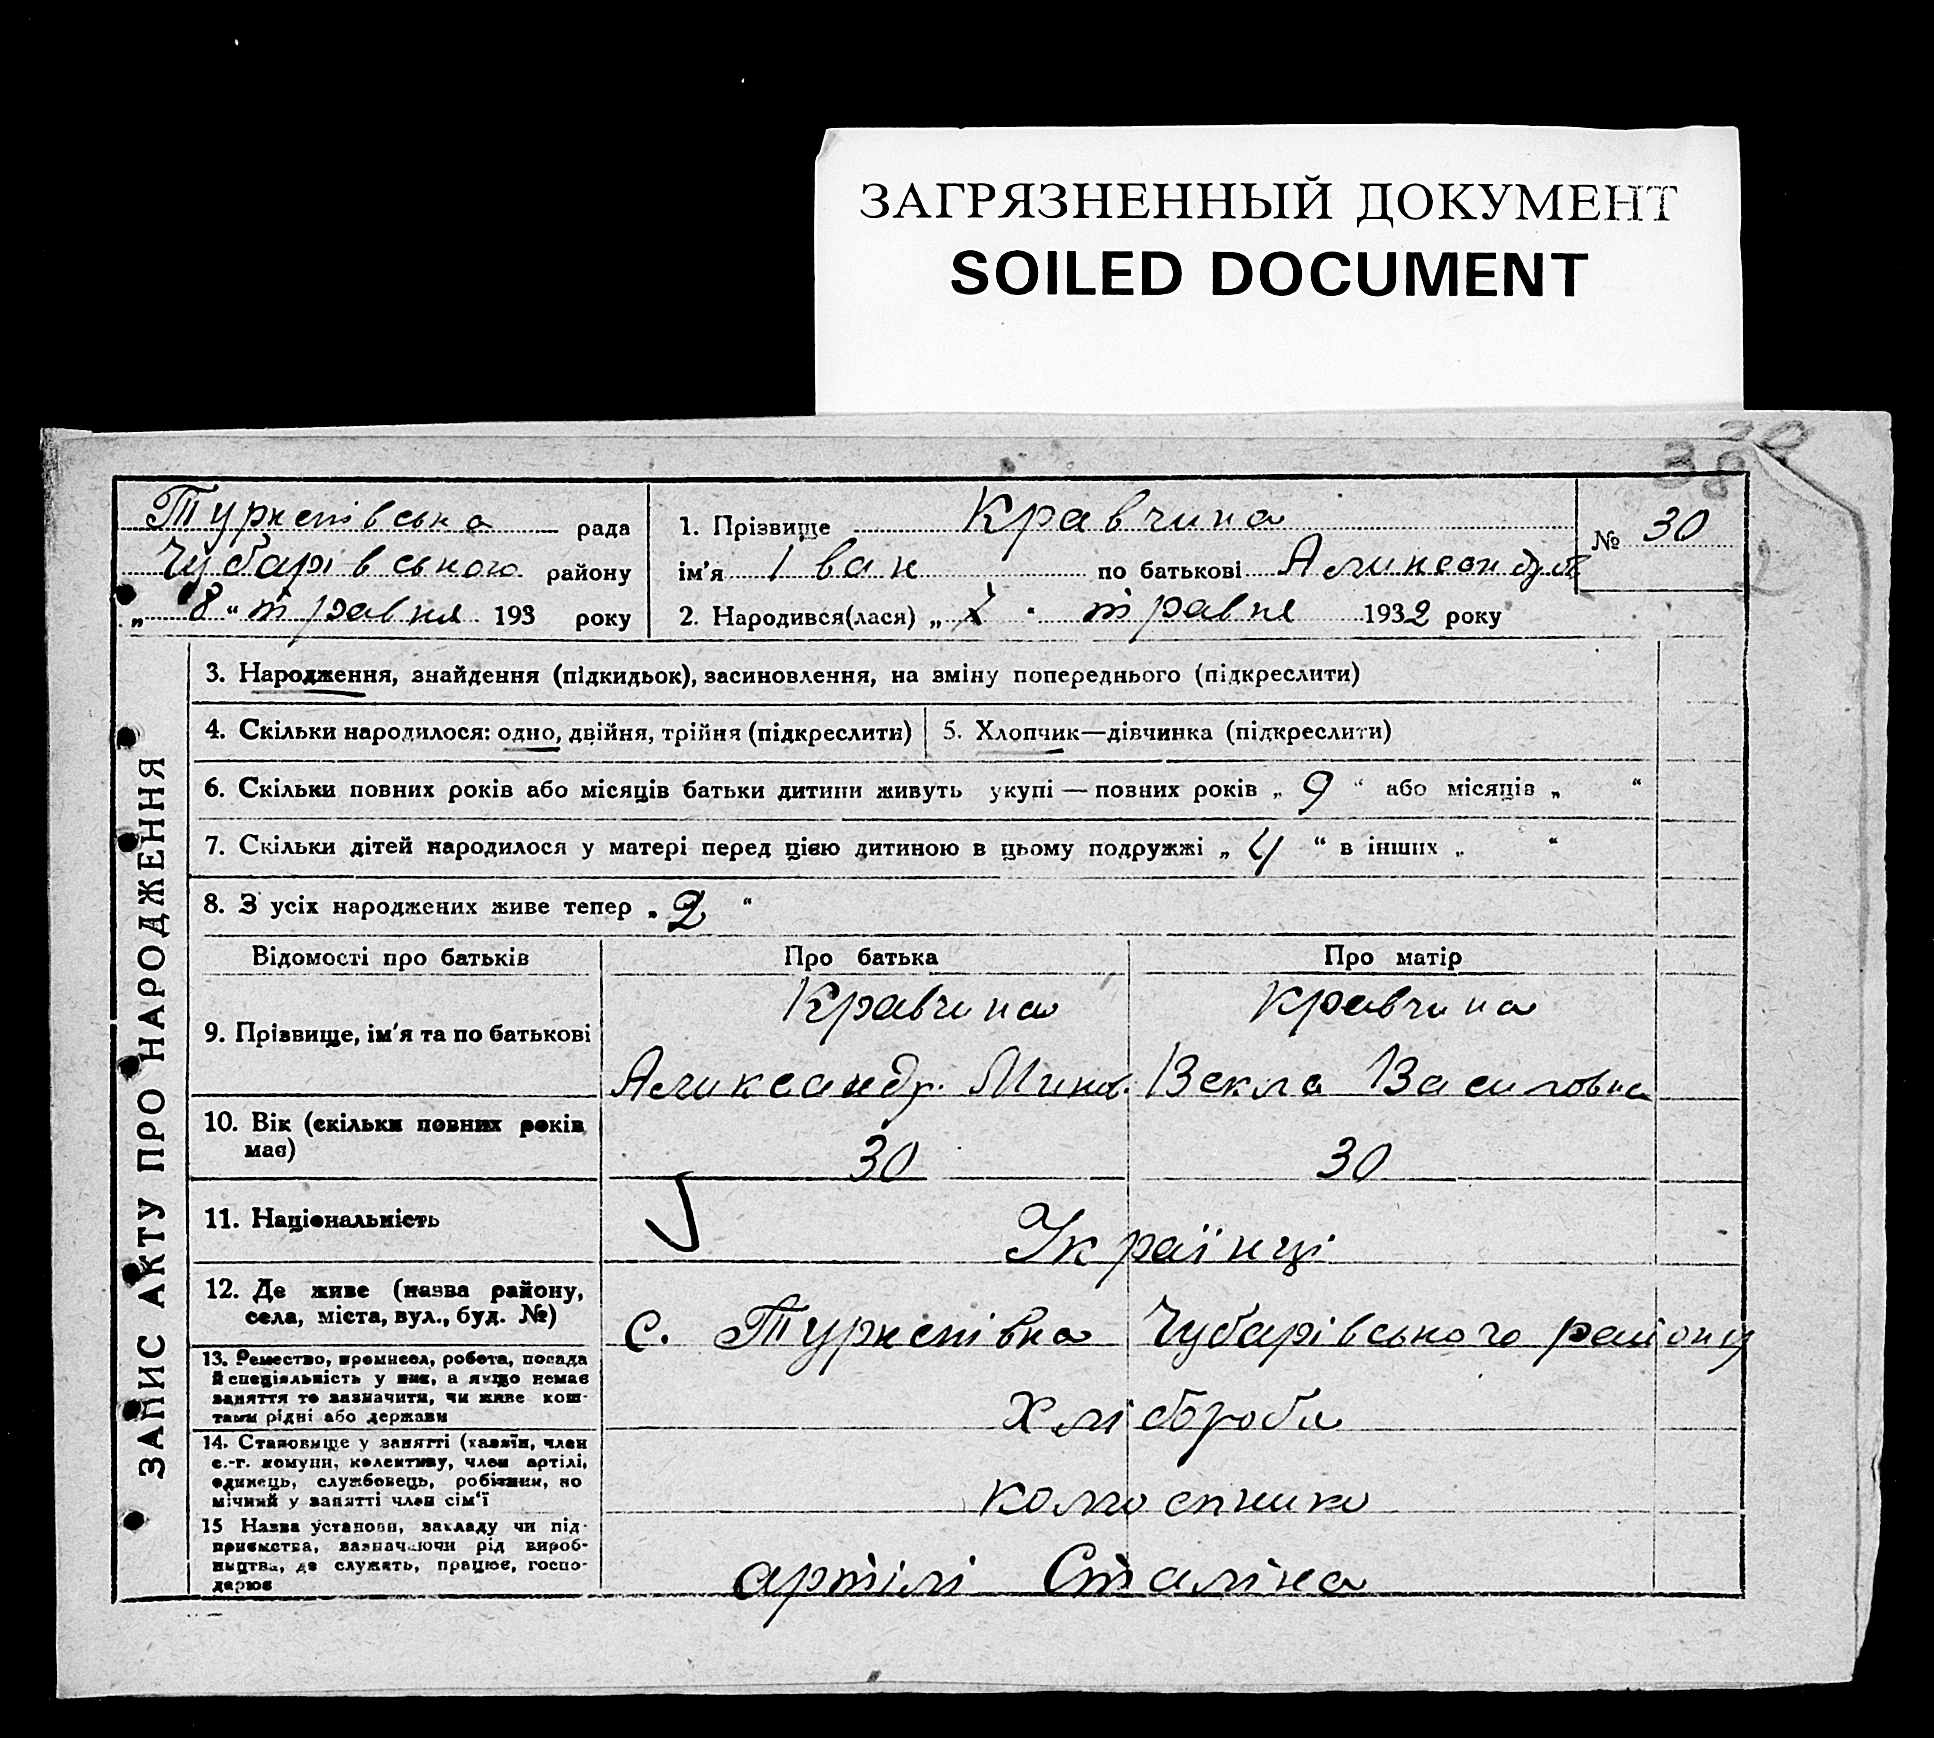 ЗАГРЯЗНЕННЫЙ ДОКУМЕНТ
SOILED DOCUMENT
Туркепівська рада
Чубарівського району
„ 8 “ травня 193 року
1. Прізвище Кравчина
ім'я Іван по батькові
2. Народився(лася) „ “ травня 1932 року
№ 30
ЗАПИС АКТУ ПРО НАРОДЖЕННЯ
3. Народження, знайдення (підкидьок), засиновлення, на зміну попереднього (підкреслити)
4. Скільки народилося: одно, двійня, трійня (підкреслити)
5. Хлопчик—дівчинка (підкреслити)
6. Скільки повних років або місяців батьки дитини живуть укупі — повних років „ 9 “ або місяців „ “
7. Скільки дітей народилося у матері перед цією дитиною в цьому подружжі „ 4 “ в інших „ “
8. З усіх народжених живе тепер „ 2 “
Відомості про батьків Про батька Про матір
9. Прізвище, ім'я та по батькові
Кравчина Кравчина
Аликсандр. Векла Василовна
10. Вік (скільки повних років має)
30 30
11. Національність
Українці
12. Де живе (назва району,
села, міста, вул., буд. №)
с. Туркепівка Чубарівського району
13. Ремество, промисел, робота, посада
й спеціяльність у них, а якщо немає
заняття то зазначити, чи живе кош-
тами рідні або держави
хлібороби
14. Становище у занятті (хазяїн, член
с.-г. комуни, колективу, член артілі,
одинець, службовець, робітник, по
мічний у занятті член сім'ї
15 Назва установи, закладу чи під-
приємства, зазначаючи рід вироб-
ництва, де служить, працює, госпо-
дарює
артілі Сталіна